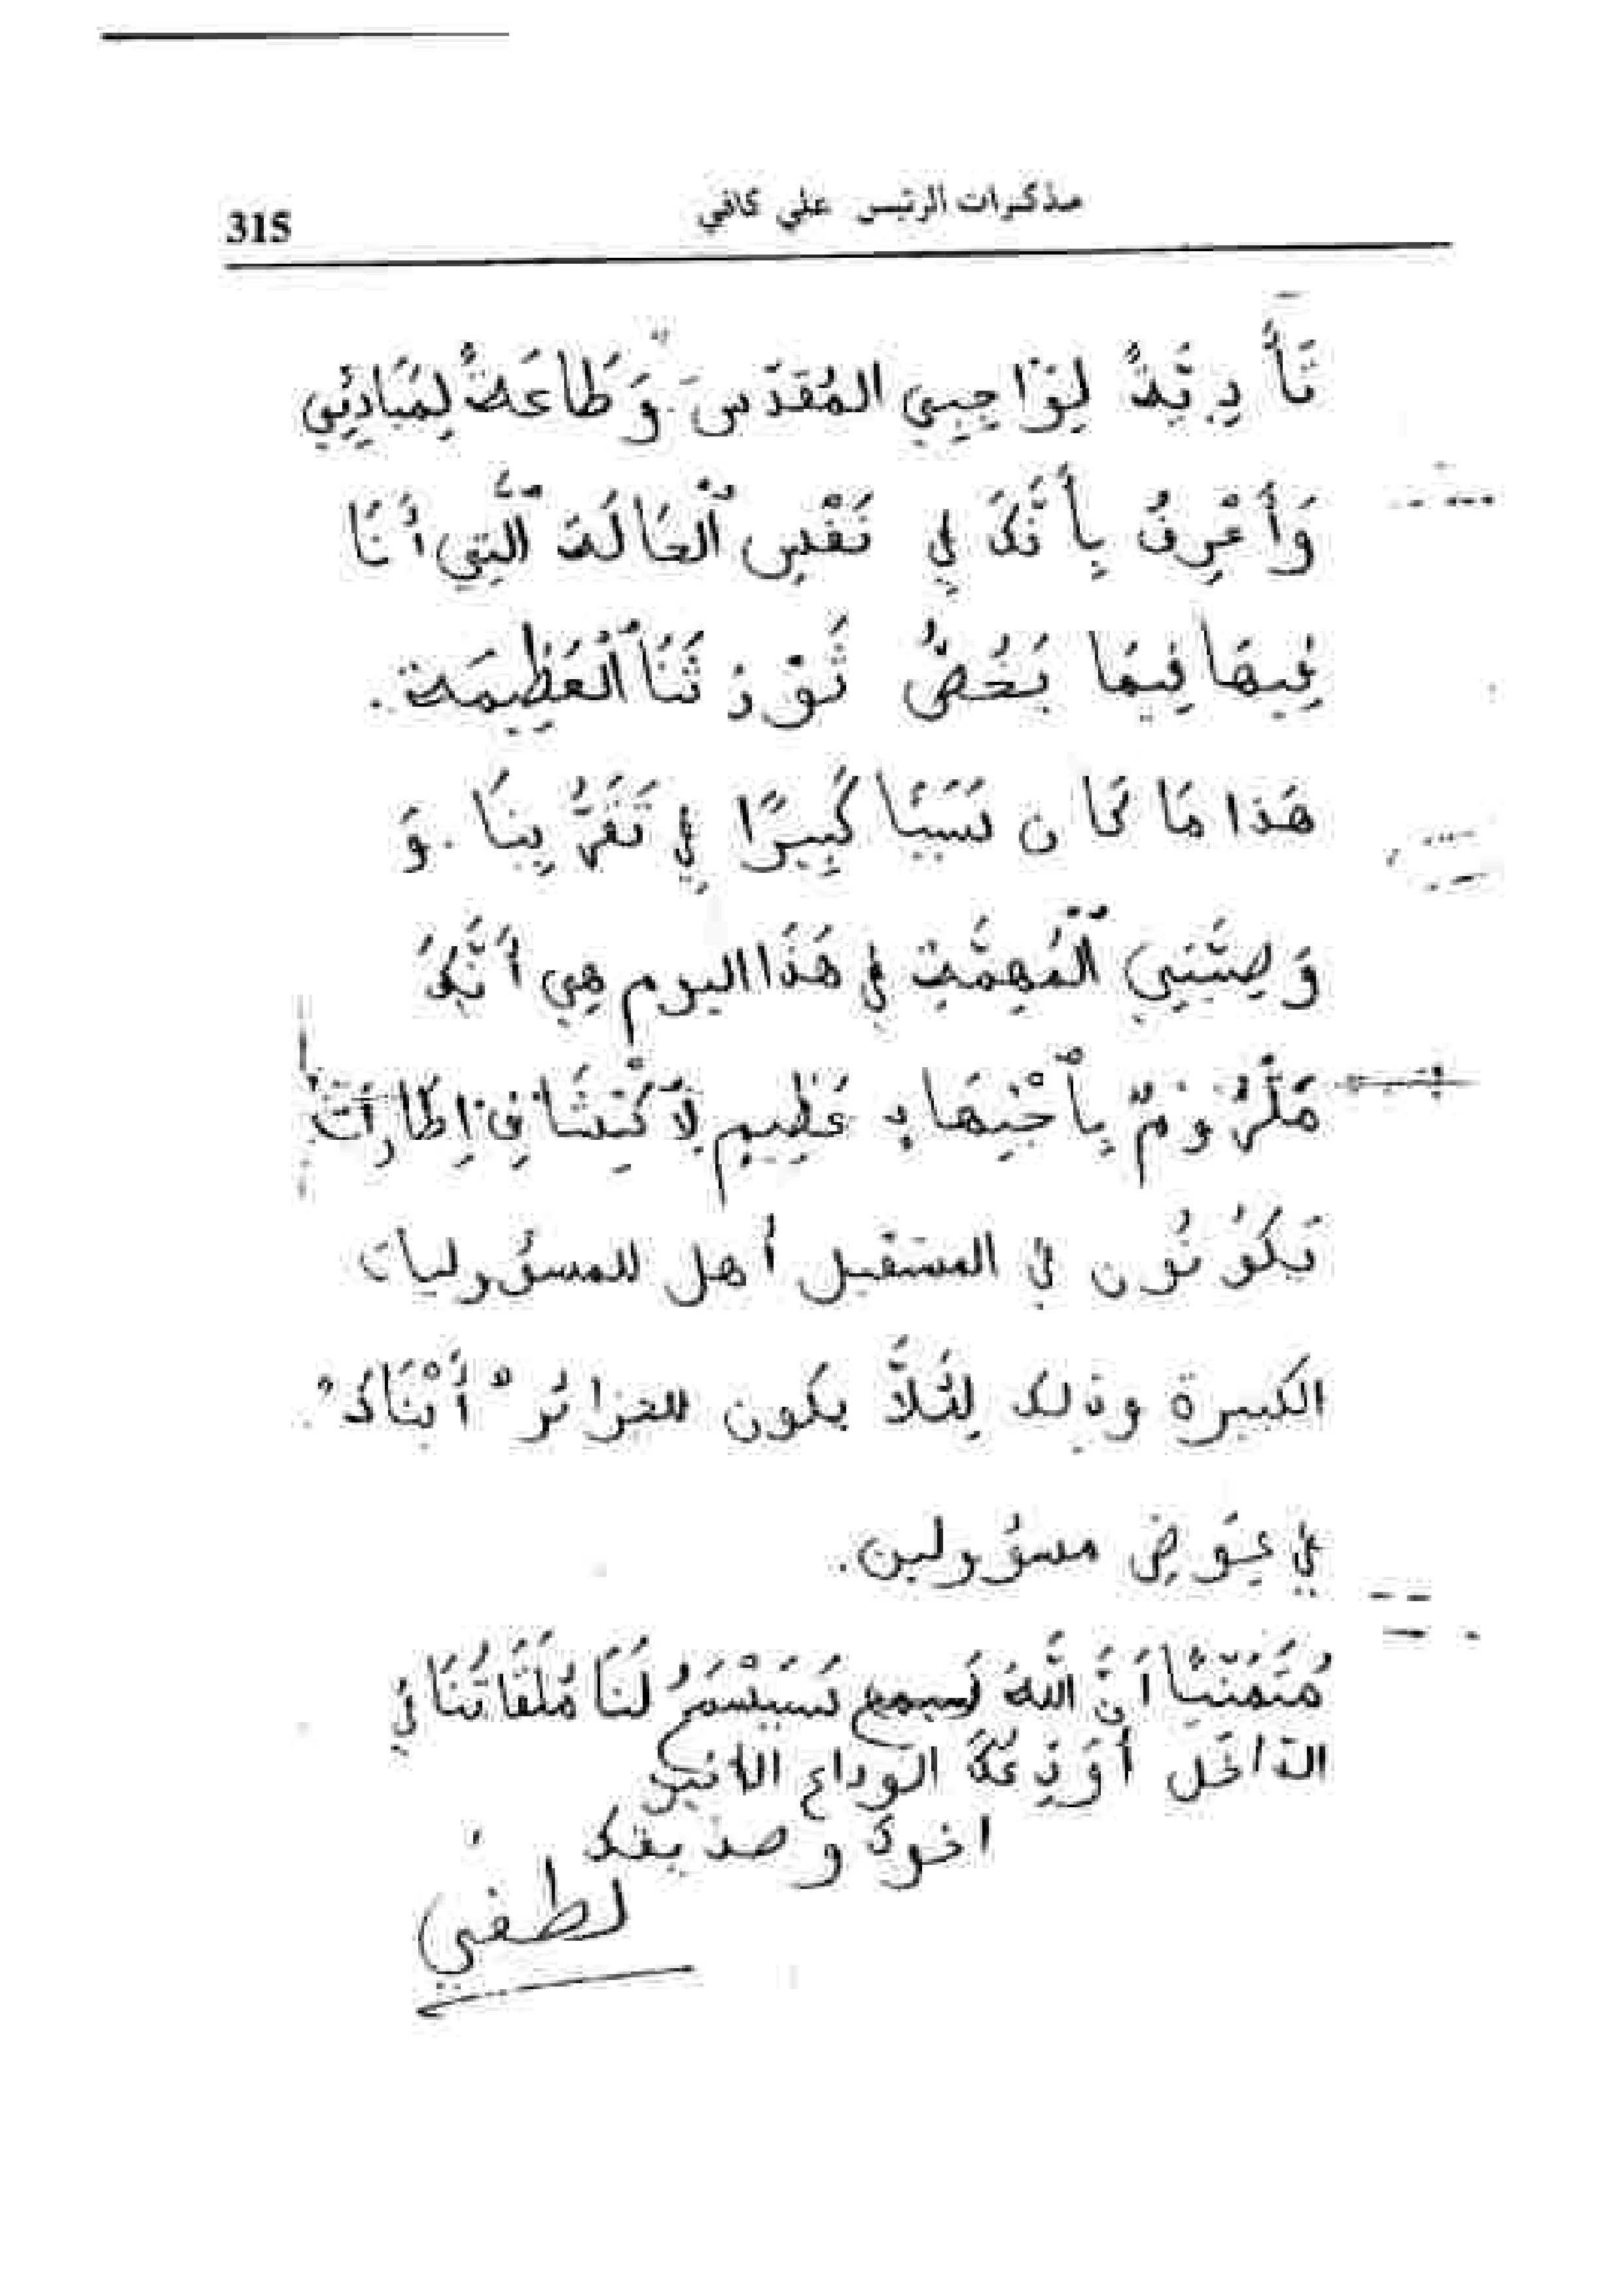 مذكرات الرئيس علي كافي
315
تَأْدِيَةً لِوَاجِبِي المُقَدَّسَ وَطَاعَةً لِمَبَادِئِي
وَأَعْرِفُ بِأَنَّكَ فِي نَفْسِ الْحَالَةَ الَّتِي أَنَا
فِيهَا فِيمَا يَخُصُّ ثَوْرَتَنَا الْعَظِيمَة.
هَذا مَا كَان سَبَبًا كَبِيرًا فِي تَقَرُّبِنَا. وَ
وَصِيَّتِي الْمُهِمَّة فِي هَذَا اليوم هِي أَنَّكَ
مَلْزُومٌ بِأجْتِهَادِ عَظِيمٍ لِإ كْتِشَافِ إِطَارَات
يَكُونُون في المستقبل أهل للمسؤوليات
الكبيرة وذلك لِئَلاَّ يكون للجزائر "أَتْبَاك"
في عِوَضِ مسؤولين.
مُتَمَنِّيًا أَنَّ اللَّهَ سَيَسْمَحُ لَنَا مُلَقَاتُنَا فِي
الدَاخَل أُوَدِّعُكَ الوداع الأخير
اخوك وصديقك
لطفي